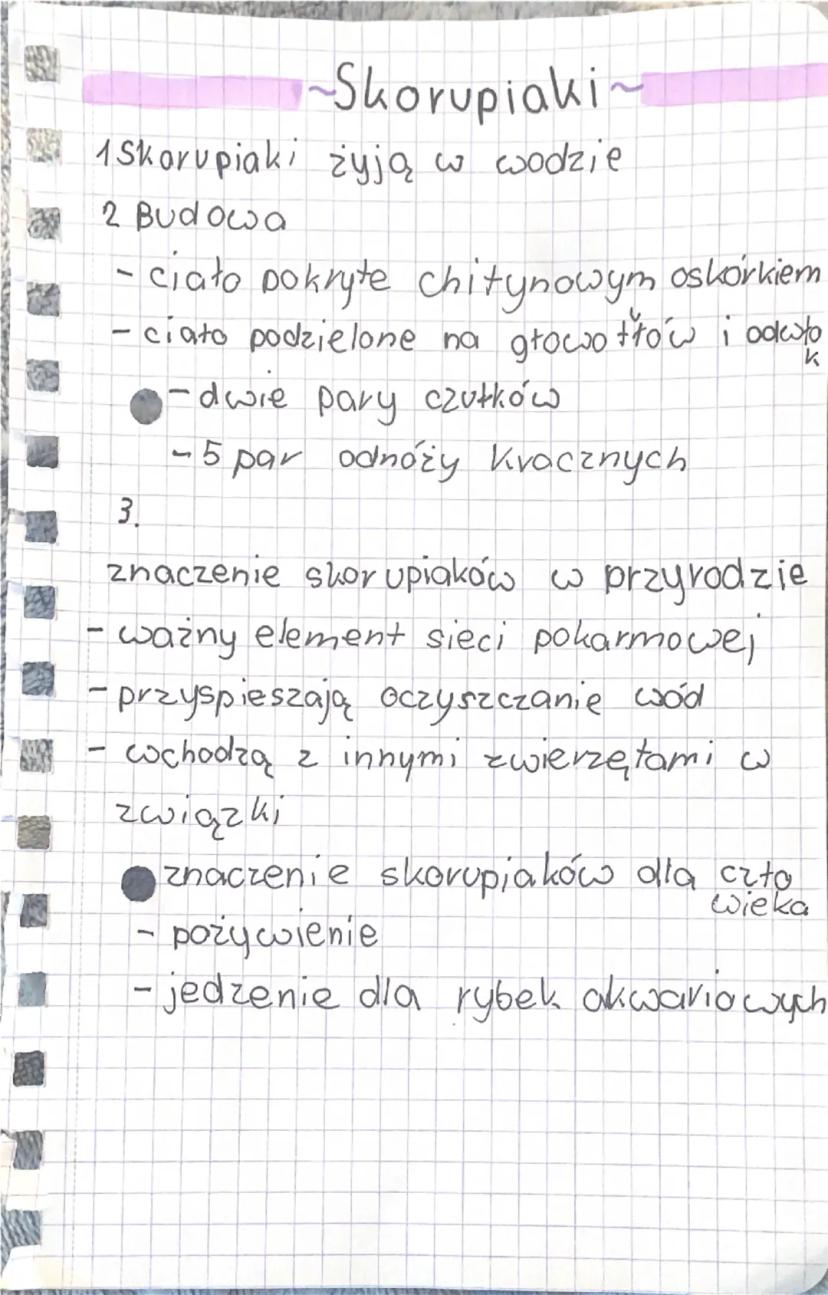 ~Skorupiaki~
1 Skorupiaki żyją w wodzie
2 Budowa
- ciało pokryte chitynowym oskórkiem
- ciało podzielone na głowotłów i odwłok
- dwie pary czułków
- 5 par odnóży kracznych
3.
znaczenie skorupiaków w przyrodzie
- ważny element sieci pokarmowej
- przyspieszają oczyszczanie wód
- wchodzą z innymi zwierzętami w
związki
znaczenie skorupiaków dla człowieka
- pożywienie
- jedzenie dla rybek akwariowych